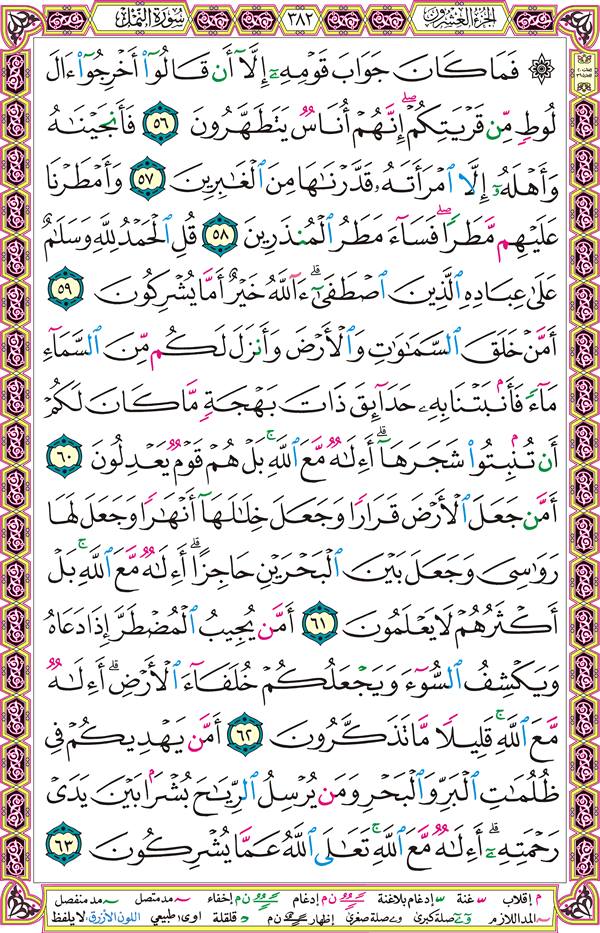 سُورَةُ النَّمْل ٣٨٢ الجُزءُ العِشرُون
۞ فَمَا كَانَ جَوَابَ قَوْمِهِۦٓ إِلَّآ أَن قَالُوٓا۟ أَخْرِجُوٓا۟ ءَالَ
لُوطٍ مِّن قَرْيَتِكُمْ ۖ إِنَّهُمْ أُنَاسٌ يَتَطَهَّرُونَ ٥٦ فَأَنجَيْنَـٰهُ
وَأَهْلَهُۥٓ إِلَّا ٱمْرَأَتَهُۥ قَدَّرْنَـٰهَا مِنَ ٱلْغَـٰبِرِينَ ٥٧ وَأَمْطَرْنَا
عَلَيْهِم مَّطَرًا ۖ فَسَآءَ مَطَرُ ٱلْمُنذَرِينَ ٥٨ قُلِ ٱلْحَمْدُ لِلَّهِ وَسَلَـٰمٌ
عَلَىٰ عِبَادِهِ ٱلَّذِينَ ٱصْطَفَىٰٓ ۗ ءَآللَّهُ خَيْرٌ أَمَّا يُشْرِكُونَ ٥٩
أَمَّنْ خَلَقَ ٱلسَّمَـٰوَٰتِ وَٱلْأَرْضَ وَأَنزَلَ لَكُم مِّنَ ٱلسَّمَآءِ
مَآءً فَأَنۢبَتْنَا بِهِۦ حَدَآئِقَ ذَاتَ بَهْجَةٍ مَّا كَانَ لَكُمْ
أَن تُنۢبِتُوا۟ شَجَرَهَآ ۗ أَءِلَـٰهٌ مَّعَ ٱللَّهِ ۚ بَلْ هُمْ قَوْمٌ يَعْدِلُونَ ٦٠
أَمَّن جَعَلَ ٱلْأَرْضَ قَرَارًا وَجَعَلَ خِلَـٰلَهَآ أَنْهَـٰرًا وَجَعَلَ لَهَا
رَوَٰسِىَ وَجَعَلَ بَيْنَ ٱلْبَحْرَيْنِ حَاجِزًا ۗ أَءِلَـٰهٌ مَّعَ ٱللَّهِ ۚ بَلْ
أَكْثَرُهُمْ لَا يَعْلَمُونَ ٦١ أَمَّن يُجِيبُ ٱلْمُضْطَرَّ إِذَا دَعَاهُ
وَيَكْشِفُ ٱلسُّوٓءَ وَيَجْعَلُكُمْ خُلَفَآءَ ٱلْأَرْضِ ۗ أَءِلَـٰهٌ
مَّعَ ٱللَّهِ ۚ قَلِيلًا مَّا تَذَكَّرُونَ ٦٢ أَمَّن يَهْدِيكُمْ فِى
ظُلُمَـٰتِ ٱلْبَرِّ وَٱلْبَحْرِ وَمَن يُرْسِلُ ٱلرِّيَـٰحَ بُشْرًۢا بَيْنَ يَدَىْ
رَحْمَتِهِۦٓ ۗ أَءِلَـٰهٌ مَّعَ ٱللَّهِ ۚ تَعَـٰلَى ٱللَّهُ عَمَّا يُشْرِكُونَ ٦٣
م إقلاب غنة إدغام بلاغنة ن م إدغام ن م إخفاء مد متصل مد منفصل
المد اللازم صلة كبرى صلة صغرى إظهار ن م قلقلة اوى: طبيعي اللون الأزرق: لا يلفظ